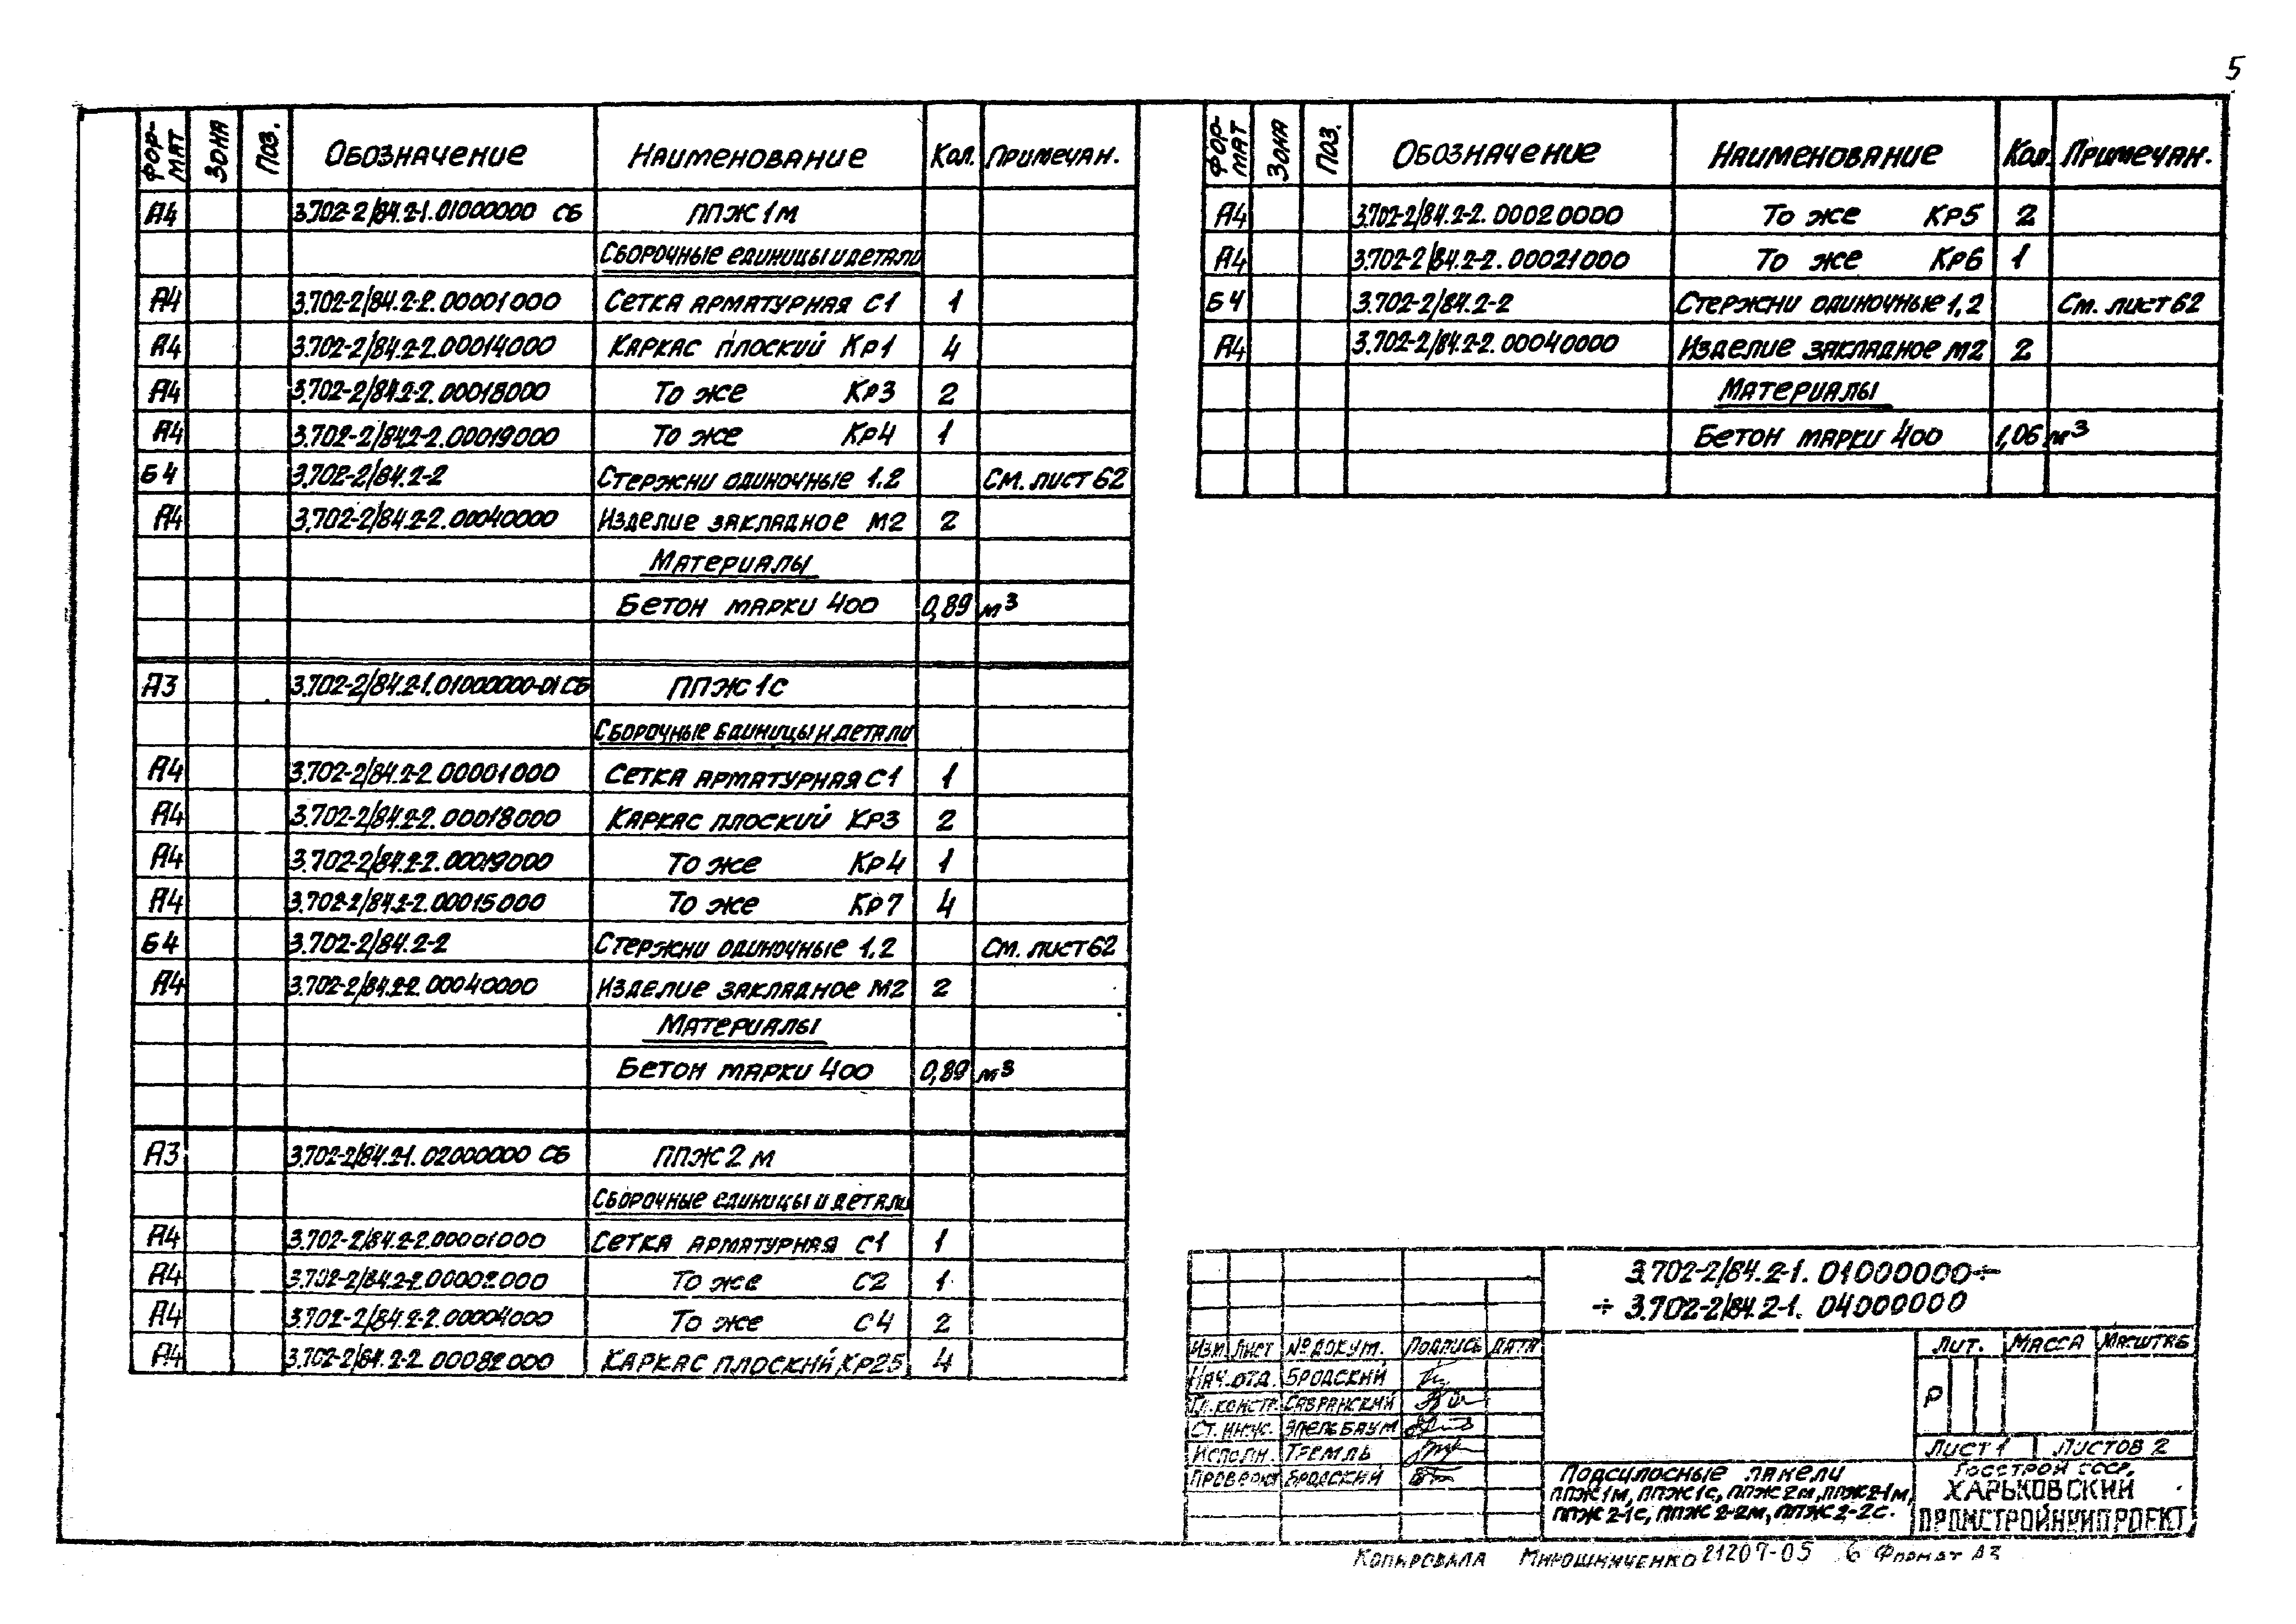 5
Фор-мат Зона Поз. Обозначение Наименование Кол. Примечан.
А4 3.702-2/84.2-1.01000000 СБ ППЖ1м
Сборочные единицы и детали
А4 3.702-2/84.2-2.00001000 Сетка арматурная С1 1
А4 3.702-2/84.2-2.00014000 Каркас плоский Кр1 4
А4 3.702-2/84.2-2.00018000 То же Кр3 2
А4 3.702-2/84.2-2.00019000 То же Кр4 1
Б4 3.702-2/84.2-2 Стержни одиночные 1.2 См. лист 62
А4 3.702-2/84.2-2.00040000 Изделие закладное М2 2
Материалы
Бетон марки 400 0,89 м³
А3 3.702-2/84.2-1.01000000-01СБ ППЖ1с
Сборочные единицы и детали
А4 3.702-2/84.2-2.00001000 Сетка арматурная С1 1
А4 3.702-2/84.2-2.00018000 Каркас плоский Кр3 2
А4 3.702-2/84.2-2.00019000 То же Кр4 1
А4 3.702-2/84.2-2.00015000 То же Кр7 4
Б4 3.702-2/84.2-2 Стержни одиночные 1,2 См. лист 62
А4 3.702-2/84.2-2.00040000 Изделие закладное М2 2
Материалы
Бетон марки 400 0,89 м³
А3 3.702-2/84.2-1.02000000 СБ ППЖ2м
Сборочные единицы и детали
А4 3.702-2/84.2-2.00001000 Сетка арматурная С1 1
А4 3.702-2/84.2-2.00002000 То же С2 1
А4 3.702-2/84.2-2.00004000 То же С4 2
А4 3.702-2/84.2-2.00082000 Каркас плоский Кр25 4
Фор-мат Зона Поз. Обозначение Наименование Кол. Примечан.
А4 3.702-2/84.2-2.00020000 То же Кр5 2
А4 3.702-2/84.2-2.00021000 То же Кр6 1
Б4 3.702-2/84.2-2 Стержни одиночные 1,2 См. лист 62
А4 3.702-2/84.2-2.00040000 Изделие закладное М2 2
Материалы
Бетон марки 400 1,06 м³
3.702-2/84.2-1.01000000÷
÷3.702-2/84.2-1.04000000
Изм Лист № докум. Подпись Дата
Нач.отд. Бродский
Гл.констр. Савранский
Ст.инж. Эпельбаум
Исполн. Тремль
Проверил Бродский
Лит. Масса Масштаб
Р
Лист 1 Листов 2
Подсилосные панели
ППЖ1м, ППЖ1с, ППЖ2м, ППЖ2-1м,
ППЖ2-1с, ППЖ2-2м, ППЖ2-2с.
Госстрой СССР,
Харьковский
Промстройниипроект
Копировала Мирошниченко 21207-05 6 Формат А3